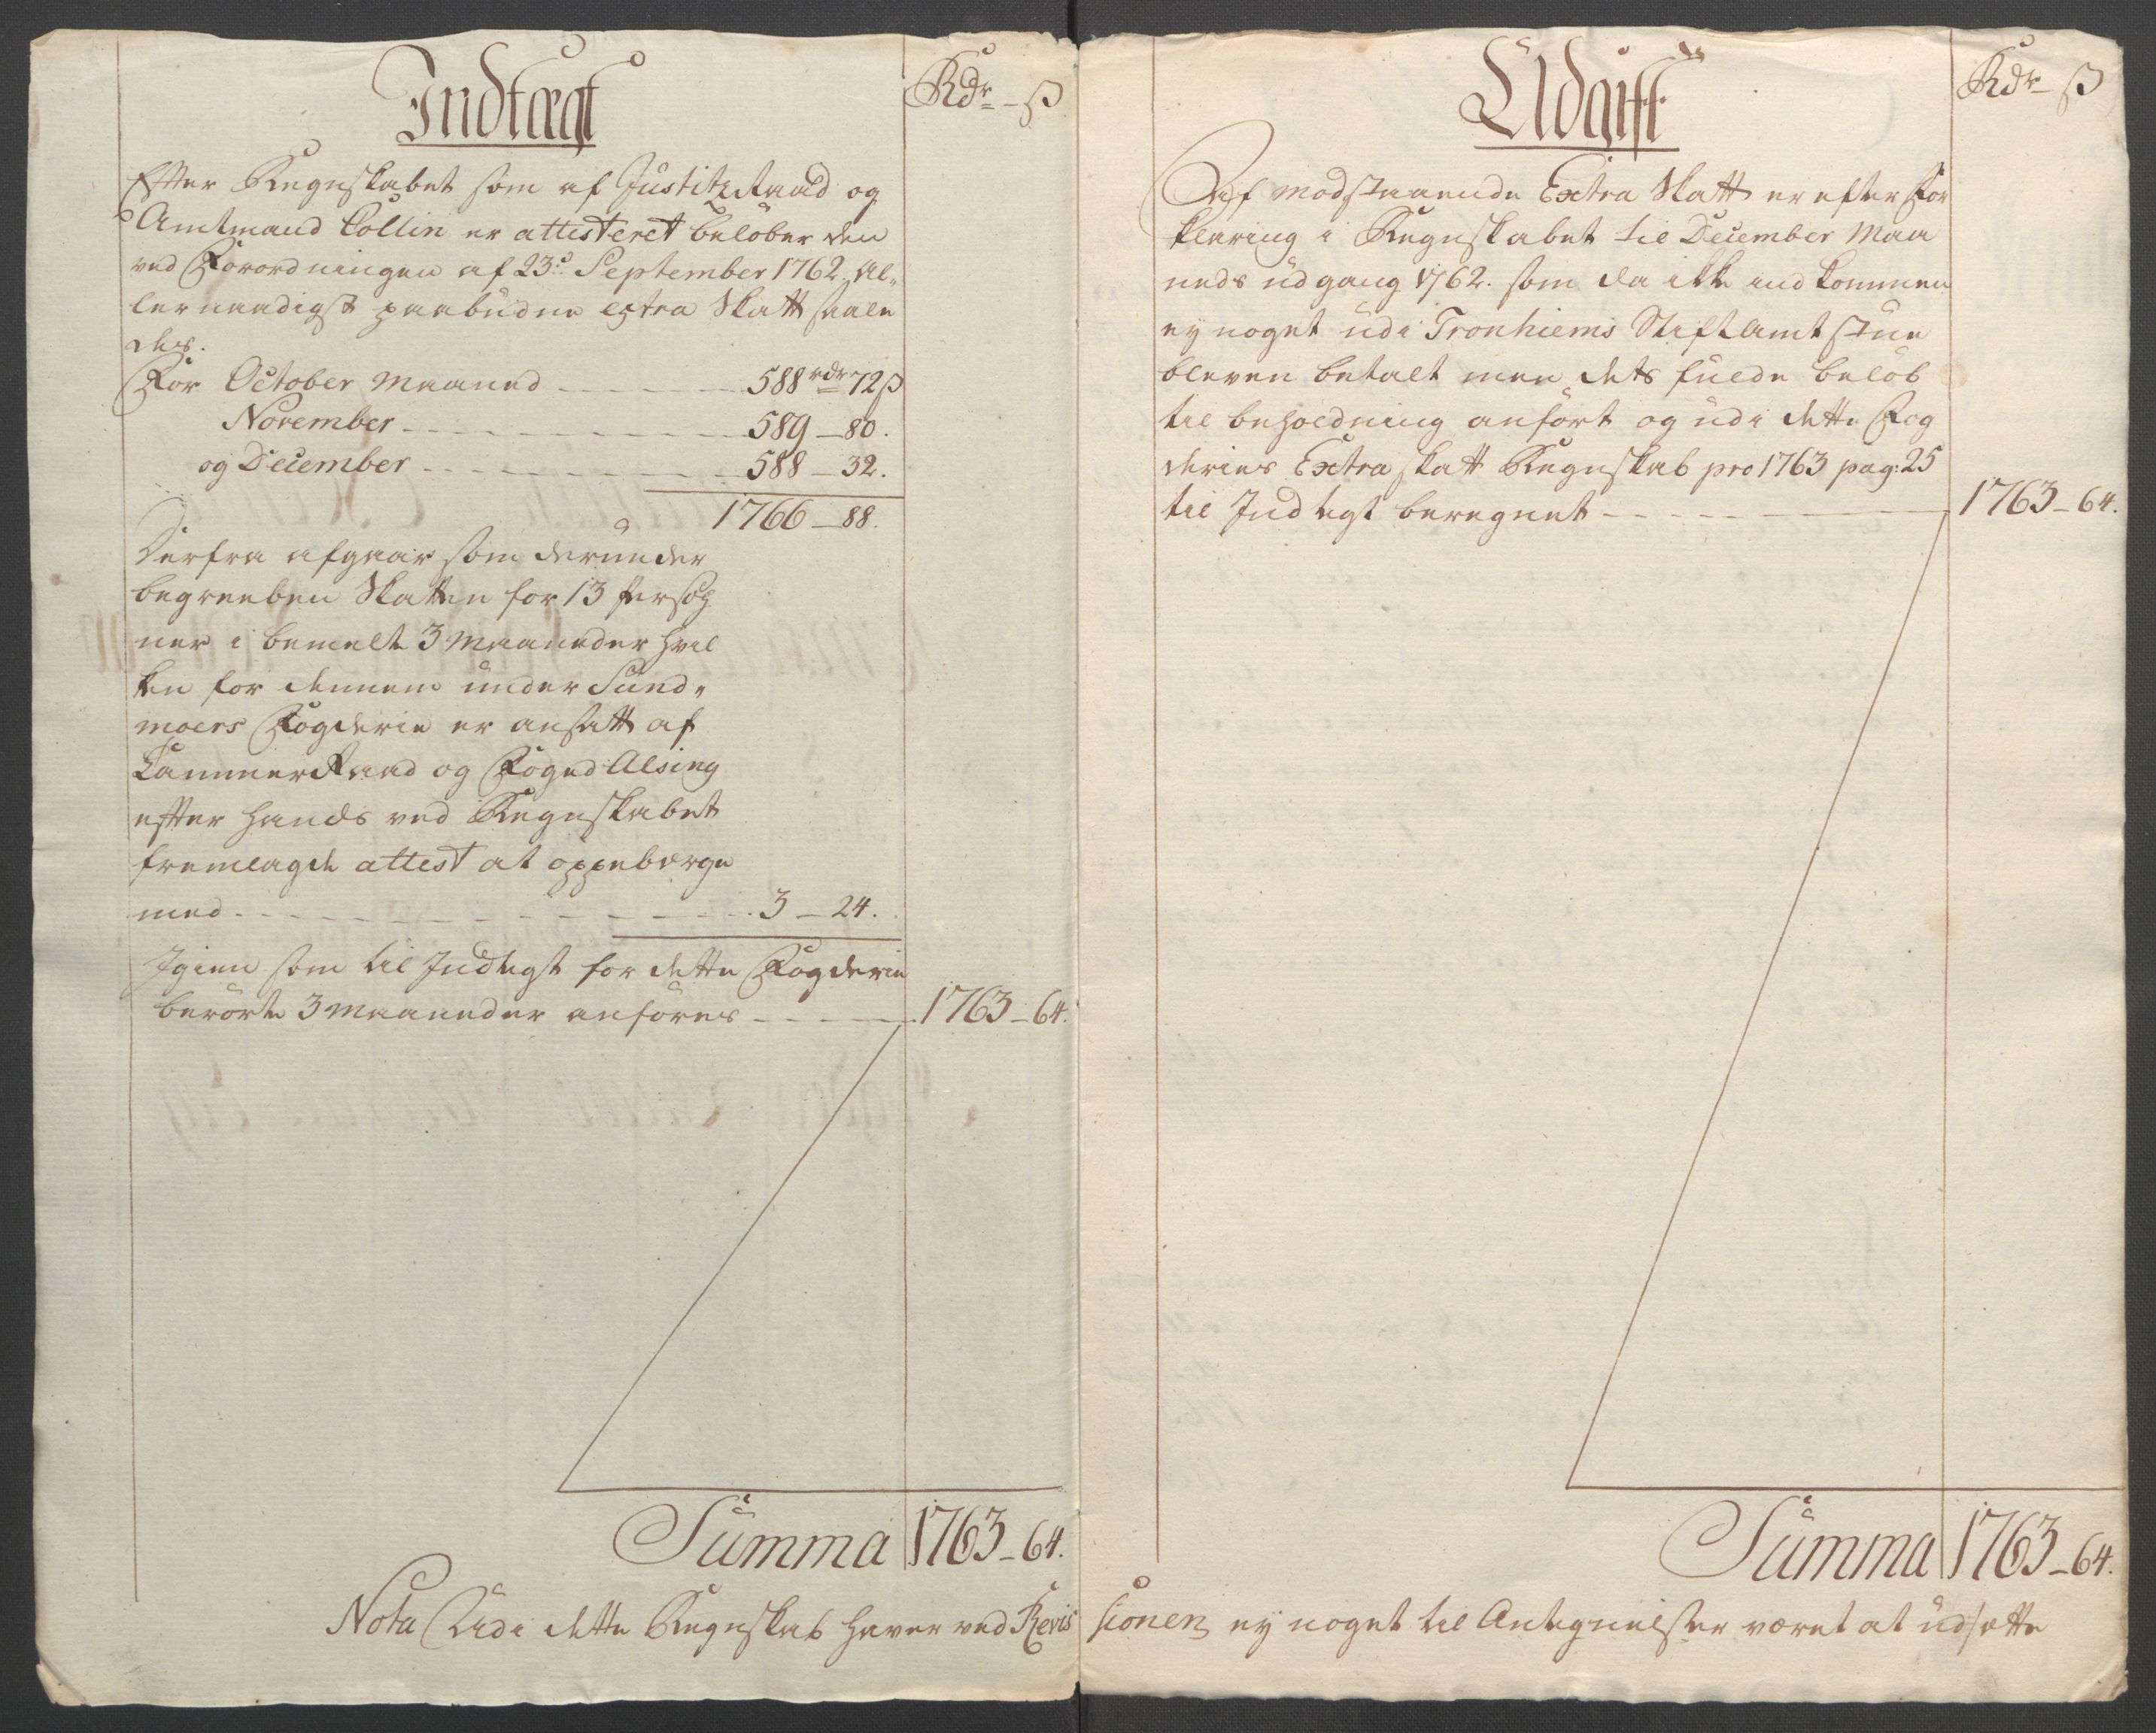 Indtægt
Rdr - ß
Efter Regnskabet som af Justitz Raad og
Amtmand Collin er attisteret beløber den
ved Forordningen af 23de September 1762. Al-
lernaadigst paabudne extra Skatt saale
des.
For October Maaned 588 rdr 72 ß
November 589 - 80.
og December 588 - 32.
1766 - 88.
Derfra afgaar som derunder
begreeben Skatten for 13 Persoh
ner i bemelte 3 Maaneder hvil
ken for dennem under Sund-
moers Fogderie er ansatt af
Cammer Raad og Foged Alsing
efter hands ved Regnskabet
fremlagde attest at oppebærge
med 3 - 24.
Igien som til Indtegt for dette Fogderie
berørte 3 Maaneder anføres 1763 - 64.
Summa 1763 - 64.
Udgift
Rdr ß
Af modstaaende Extra Skatt er efter For
klaring i Regnskabet til December Maa
neds udgang 1762. som da ikke ind kommen
ey noget udi Tronhiems Stiftamtstue
bleven betalt men dets fulde beløb
til beholdning anført og udi dette Fog
deries Extra skatt Regnskab pro 1763 pag: 25
til Indtegt beregnet 1763 - 64.
Summa 1763 - 64.
Nota Udi dette Regnskab haver ved Revis sionen ey noget til Antegnelser været at udsætte